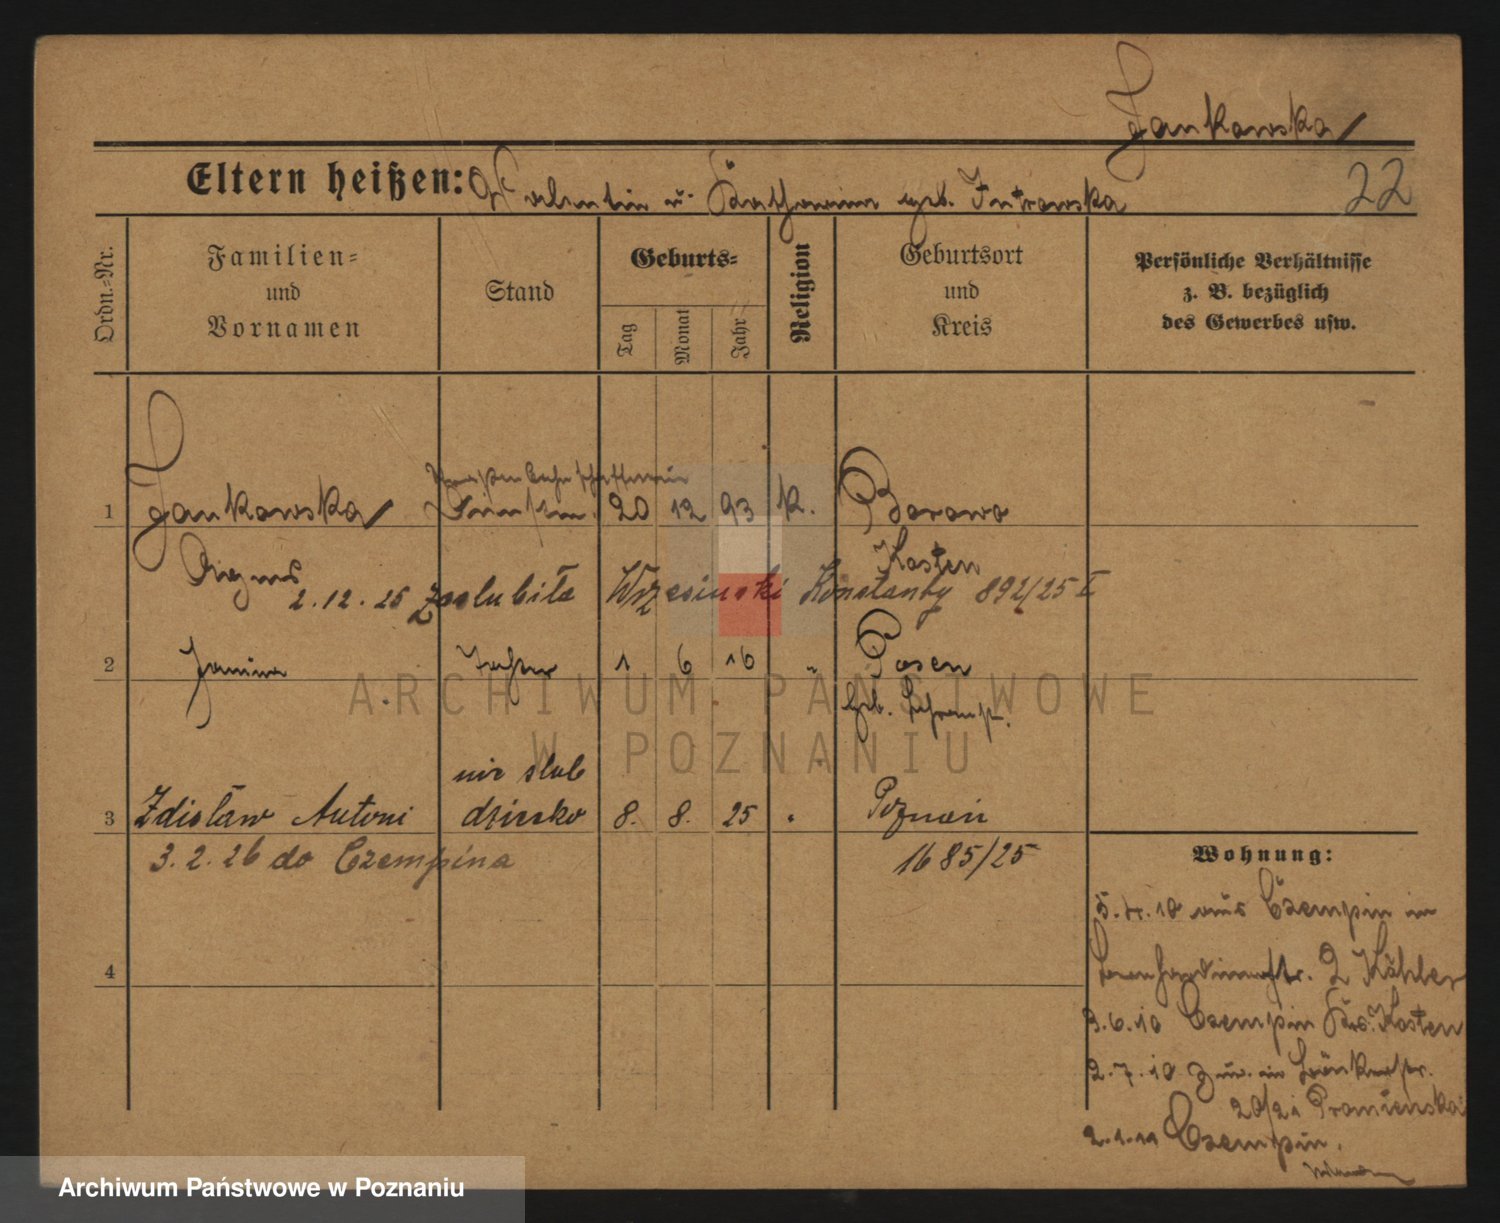 Jankowska
Eltern heißen: Valentin u. Katharina geb. Introwska
22
Ordn.-Nr.
Familien-
und
Vornamen
Stand
Geburts-
Tag
Monat
Jahr
Religion
Geburtsort
und
Kreis
Persönliche Verhältnisse
z. B. bezüglich
des Gewerbes usw.
1 Jankowska 20 12 93 K. Borowo
Agnes Kosten
2.12.25 zaslubiła Wrzesinski Konstanty 892/25 I
2 Janina Tochter 1 6 16 " Posen
nie slub
3 Zdisław Antoni dziecko 8. 8. 25 " Poznań
3.2.26 do Czempina 1685/25
Wohnung:
5.4.10 aus Czempin in
2 Köhler
4
3.6.10 Czempin Krs. Kosten
2.7.10 zur. in
20/21 Promienska
2.1.11 Czempin.
ARCHIWUM PAŃSTWOWE
W POZNANIU
Archiwum Państwowe w Poznaniu